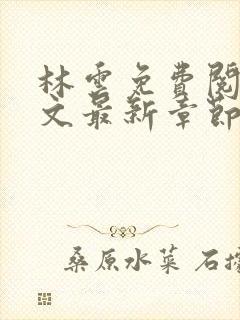 林雲免費閱
文最新章節
桑原水菜 石據